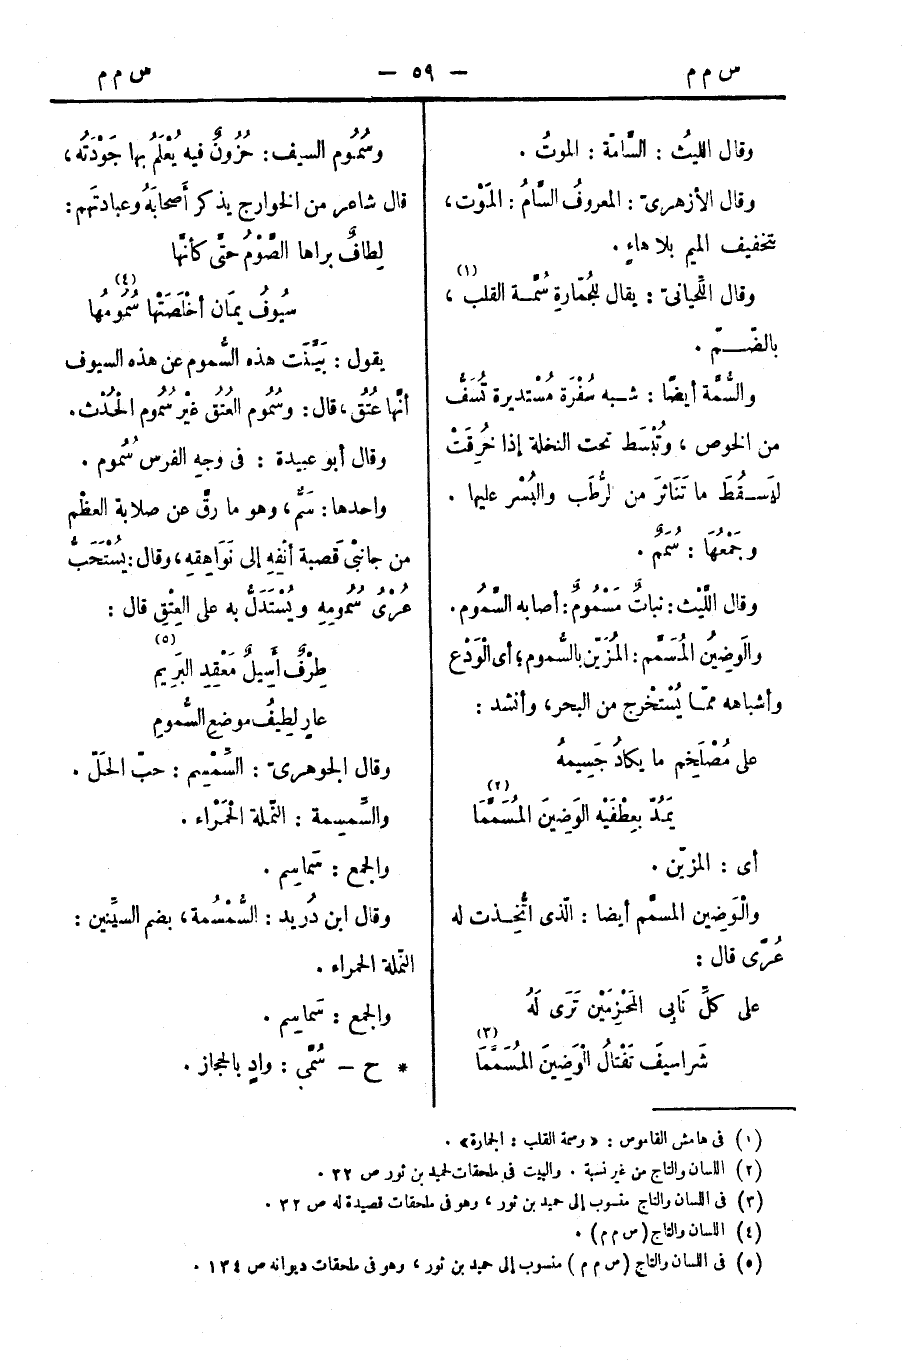 س م م — ٥٩ — س م م
وقال الليثُ : السَّامَّة : الموتُ .
وقال الأزهرىّ : المعروفُ السَّامُ : المَوْت ،
بتخفيف الميم بلا هاءٍ .
وقال اللِّحيانىّ : يقال للجُمّارةِ سُمَّـة القلب (١) ،
بالضّـــمّ .
والسُّمَّة أيضًا : شـبه سُفْرَة مُسْتديرة تُسَفُّ
من الخوص ، وتُبْسَط تحت النخلة إذا خُرِفَتْ
ليَسـقُطَ ما تَنَاثرَ من الرُّطَب والبُسْر عليها .
وجَمْعُهَا : سُمَمٌ .
وقال اللَّيْث : نباتٌ مَسْمُومٌ : أصابه السَّمُوم .
والوَضِينُ المُسَمَّم : المُزَيّن بالسُّموم ؛ أى الْوَدْع
وأشباهه ممّا يُسْتَخْرج من البحر ، وأنشد :
على مُصْلَخِم ما يكادُ جَسِيمهُ
يَمُدّ بِعِطْفَيْه الوَضِينَ المُسَمَّمَا (٢)
أى : المزيّن .
والْوَضِين المسمَّم أيضا : الّذى اتُّخِـذت له
عُرًى قال :
على كلِّ نَابِى المَحْزِمَيْن تَرَى لَهُ
شَراسيفَ تَغْتالُ الْوَضِينَ المُسَمَّمَا (٣)
وسُمُوم السيف : حُزُونٌ فيه يُعْلَمُ بها جَوْدَتُه ،
قال شاعر من الخوارج يذكر أَصحابَهُ وعبادتَهم :
لِطافٌ براها الصَّوْمُ حتَّى كأنَّها
سُيوفُ يمَان أخْلَصَتْها سُمُومُها (٤)
يقول : بَيَّنَت هذه السُّموم عن هذه السيوف
أنَّها عُتُق ، قال : وسُمُوم العُتُق غيْر سُمُوم الحُدْث .
وقال أبو عبيدة : فى وجهِ الفرس سُمُوم .
واحدها : سَمٌّ ، وهو ما رقَّ عن صلابة العظْم
من جانبَىْ قَصبة أنْفِهِ إلى نَوَاهِقِهِ ، وقال : يُسْتَحَبُّ
عُرْىُ سُمُومِهِ ويُسْتَدَلُّ به على العِتْقِ قال :
طِرْفٌ أَسِيلٌ مَعْقِدِ البَرِيم (٥)
عارٍ لطِيفُ موضعِ السُّمومِ
وقال الجوهرىّ : السِّمْسِم : حبّ الحَلّ .
والسِّمسِمة : النَّملة الحَمْراء .
والجمع : سَماسِم .
وقال ابن دُريد : السُّمْسُمة ، بضم السينين :
النَّملة الحمراء .
والجمع : سَماسِم .
* ح – سُمَّى : وادٍ بالحجاز .
(١) فى هامش القاموس : « وسمة القلب : الجمارة» .
(٢) اللسان والتاج من غير نسبة . والبيت فى ملحقات لحميد بن ثور ص ٣٢ .
(٣) فى اللسان والتاج منسوب إلى حميد بن ثور ، وهو فى ملحقات قصيدة له ص ٣٢ .
(٤) اللسان والتاج (س م م) .
(٥) فى اللسان والتاج (س م م) منسوب إلى حميد بن ثور ، وهو فى ملحقات ديوانه ص ١٣٤ .